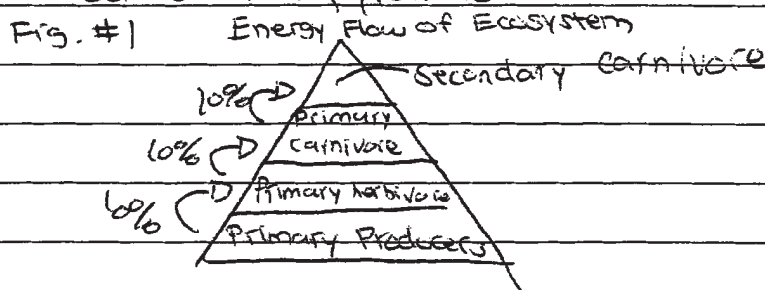 Fig. #1 Energy Flow of Ecosystem
Secondary Carnivore
10%
Primary
Carnivore
10%
Primary herbivore
10%
Primary Producers